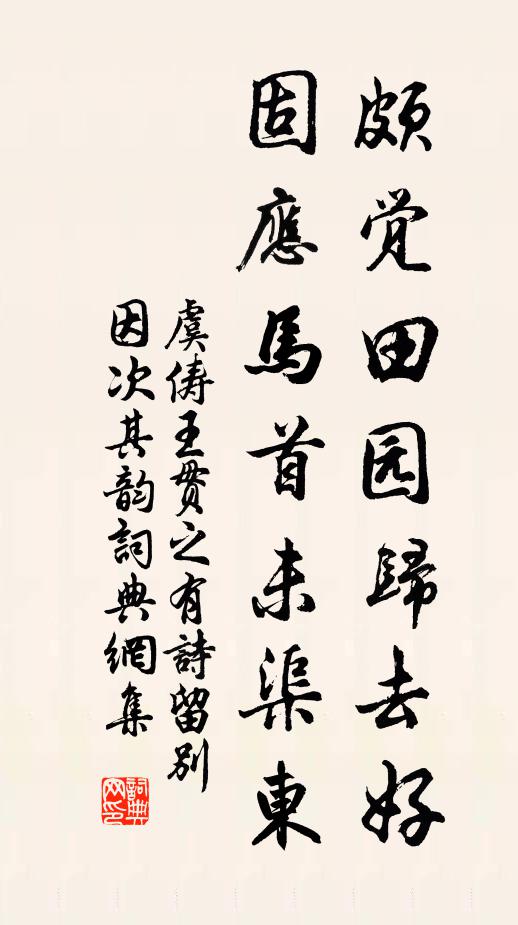 頗觉田园歸去好
固應馬首未渠東
虞俦王貫之有詩留别
因次其韵詞典網集
詞典网印